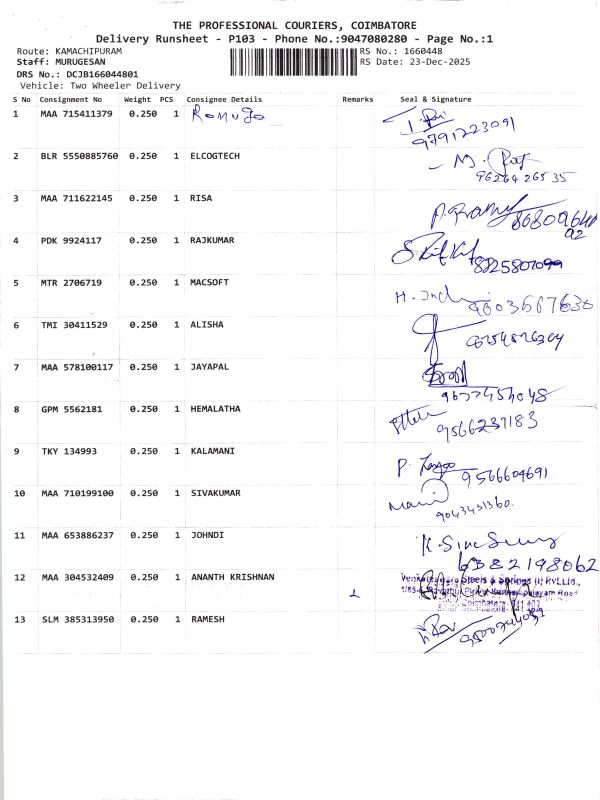 THE PROFESSIONAL COURIERS, COIMBATORE
Delivery Runsheet - P103 - Phone No.:9047080280 - Page No.:1
Route: KAMACHIPURAM RS No.: 1660448
Staff: MURUGESAN RS Date: 23-Dec-2025
DRS No.: DCJB166044801
Vehicle: Two Wheeler Delivery
S No Consignment No Weight PCS Consignee Details Remarks Seal & Signature
1 MAA 715411379 0.250 1 9791223091
2 BLR 5550885760 0.250 1 ELCOGTECH 9626426535
3 MAA 711622145 0.250 1 RISA
4 PDK 9924117 0.250 1 RAJKUMAR
5 MTR 2706719 0.250 1 MACSOFT
6 TMI 30411529 0.250 1 ALISHA
7 MAA 578100117 0.250 1 JAYAPAL
8 GPM 5562181 0.250 1 HEMALATHA 9566237183
9 TKY 134993 0.250 1 KALAMANI 9566604691
10 MAA 710199100 0.250 1 SIVAKUMAR 9043451360.
11 MAA 653886237 0.250 1 JOHNDI 6382198062
12 MAA 304532409 0.250 1 ANANTH KRISHNAN Steels & Springs (I) Pvt.Ltd.,
13 SLM 385313950 0.250 1 RAMESH